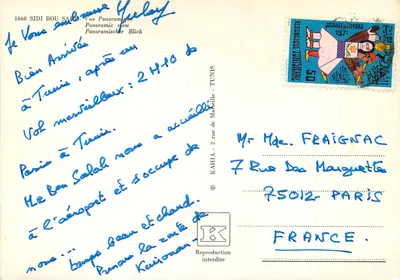 1660 SIDI BOU SAID - Vue Panoramique
Panoramic view
Panoramischer Blick
Je Vous embrasse
Bien Arrivés
à Tunis, après un
Vol merveilleux : 2H10 de
Paris à Tunis.
Me Ben Salah nous a accueilli
à l'aéroport et s'occupe de
nous... temps beau et chaud.
Prenons la route de
Kairouan-
© KAHIA - 2 rue de Marseille - TUNIS
K
Reproduction
interdite
REPUBLIQUE TUNISIENNE
50
Mr Mde. FRAIGNAC
7 Rue Dos Marguettes
75012 - PARIS
FRANCE.